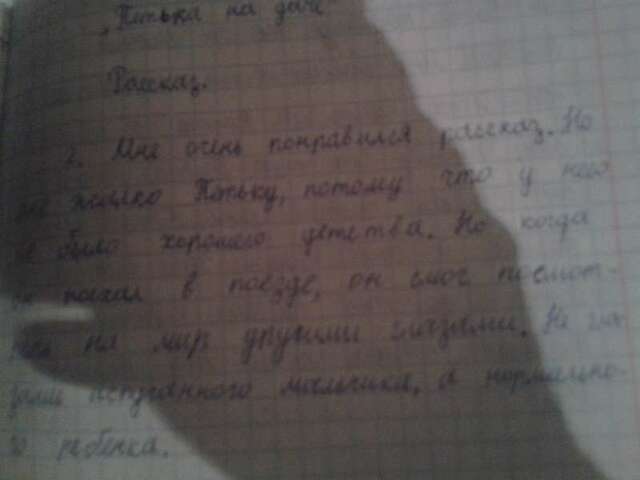 „Петька на даче"
Рассказ.
2. Мне очень понравился рассказ. Но
мне жалко Петьку, потому что у него
не было хорошего детства. Но когда
он поехал в поезде, он смог посмот-
реть на мир другими глазами. Не гла-
зами испуганного мальчика, а нормально-
го ребенка.